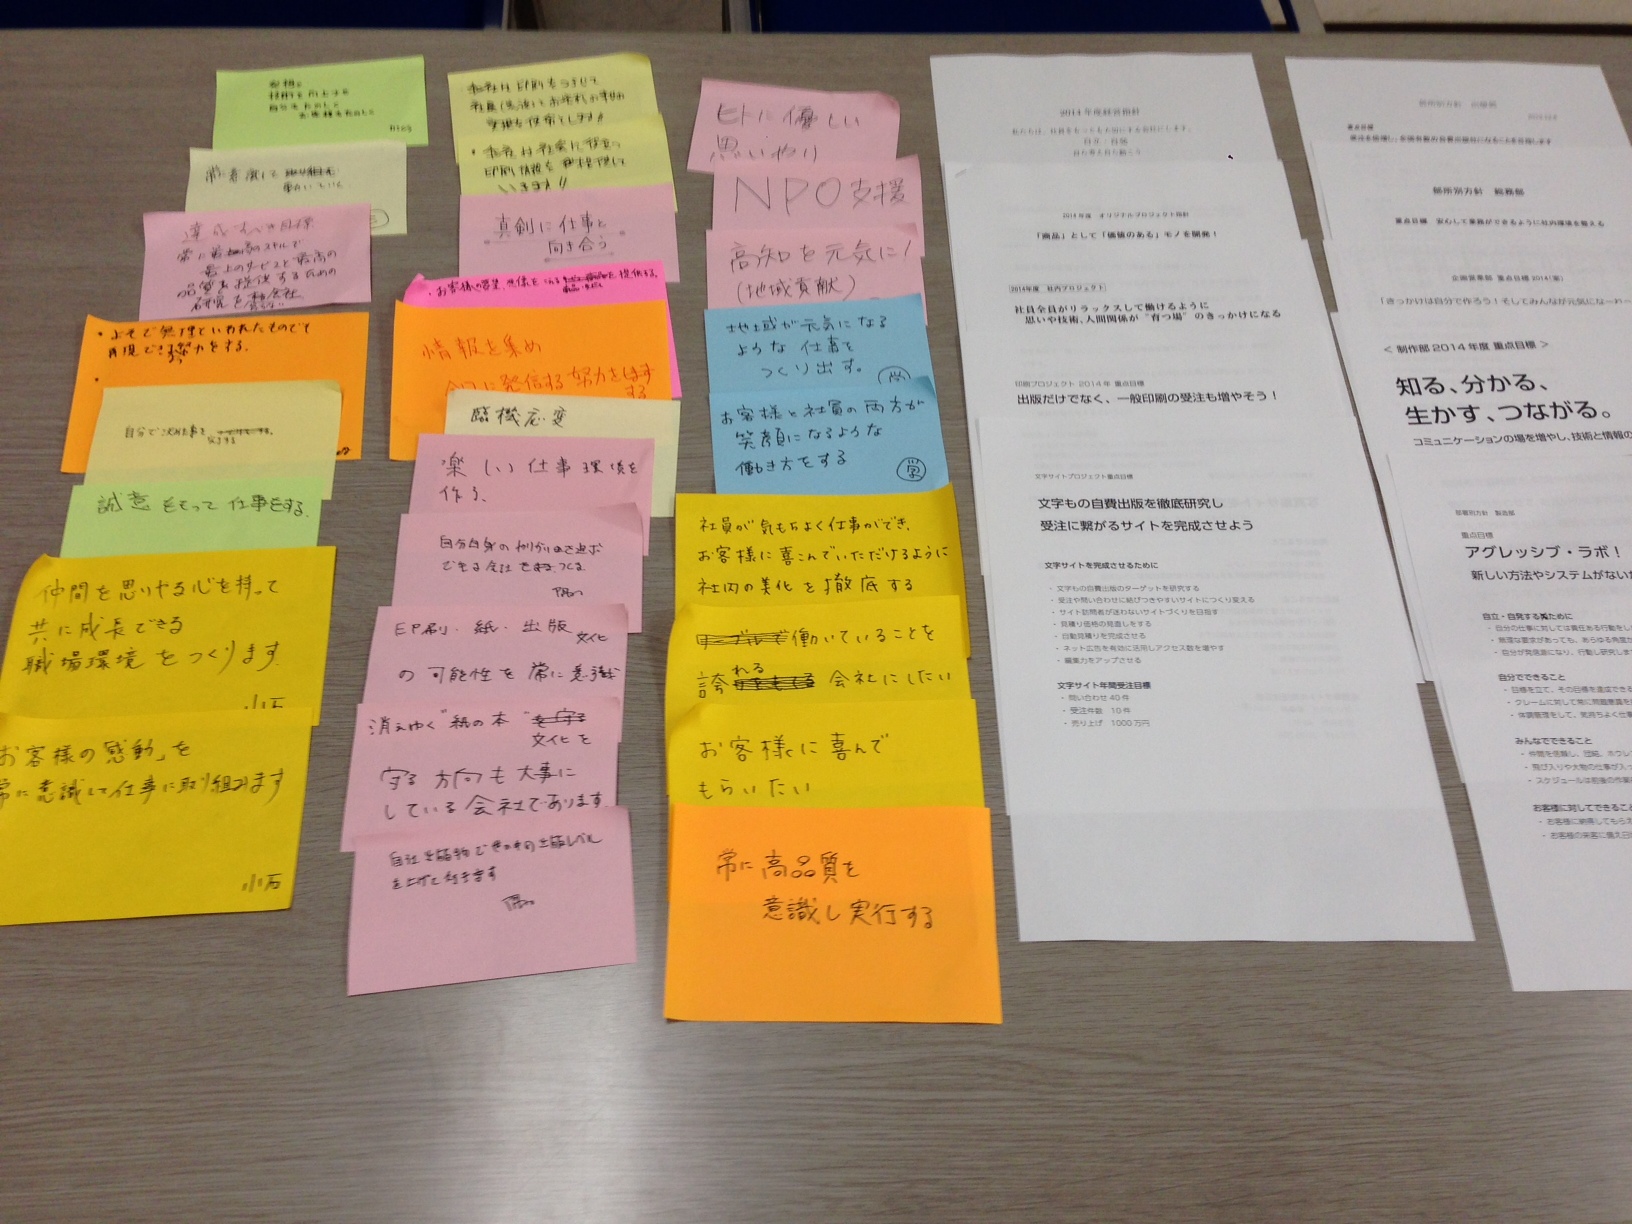 自分をたのしく
お客様をたのしく
常に意識して
動いていく。
達成すべき目標
常に最高のスキルで
最上のサービスと最高の
品質を提供するための
研究を
・よそで無理といわれたものでも
再現できる努力をする。
・
自分で決めた事を
誠意をもって仕事をする。
仲間を思いやる心を持って
共に成長できる
職場環境をつくります
小石
お客様の感動」を
常に意識して仕事に取り組みます
小石
本会社は印刷をつうじて
・本会社は社会に役立つ
印刷情報を
いきます!!
真剣に仕事と
向き合う
・お客様の要望
提供する。
情報を集め
発信する努力を
する
臨機応変
楽しい仕事環境を
作る、
自分自身の
できる会社を
印刷・紙・出版
文化
の可能性を常に意識
消えゆく"紙の本"
文化を
守る方向も大事に
している会社であります
自社出版物
を上げて行きます
ヒトに優しい
思いやり
NPO支援
高知を元気に!
(地域貢献)
地域が元気になる
ような仕事を
つくり出す。
お客様と社員の両方が
笑顔になるような
働き方をする
社員が気もちよく仕事ができ、
お客様に喜こんでいただけるように
社内の美化を徹底する
働いていることを
誇れる会社にしたい
お客様に喜んで
もらいたい
常に高品質を
意識し実行する
2014年度経営指針
私たちは、社員をもっとも大切にする会社にします。
自立・自発
自ら考え自ら動こう
2014年度 オリジナルプロジェクト指針
「商品」として「価値のある」モノを開発!
2014年度 社内プロジェクト
社員全員がリラックスして働けるように
思いや技術、人間関係が"育つ場"のきっかけになる
印刷プロジェクト 2014年 重点目標
出版だけでなく、一般印刷の受注も増やそう!
文字サイトプロジェクト重点目標
文字もの自費出版を徹底研究し
受注に繋がるサイトを完成させよう
文字サイトを完成させるために
・文字もの自費出版のターゲットを研究する
・受注や問い合わせに結びつきやすいサイトにつくり変える
・サイト訪問者が迷わないサイトづくりを目指す
・見積り価格の見直しをする
・自動見積りを完成させる
・ネット広告を有効に活用しアクセス数を増やす
・編集力をアップさせる
文字サイト年間受注目標
・問い合わせ 40件
・受注件数 10件
・売り上げ 1000万円
部所別方針
重点目標
部所別方針 総務部
重点目標 安心して業務ができるように社内環境を整える
企画営業部 重点目標 2014(案)
「きっかけは自分で作ろう!そしてみんなが元気になーれ
< 制作部2014年度 重点目標 >
知る、分かる、
生かす、つながる。
コミュニケーションの場を増やし、技術と情報の
部署別方針 製造部
重点目標
アグレッシブ・ラボ!
新しい方法やシステムがないか
自立・自発するために
・自分の仕事に対しては責任ある行動をし
・無理な要求があっても、あらゆる角度か
・自分が発信源になり、行動し研究しま
自分でできること
・目標を立て、その目標を達成できる
・クレームに対して常に問題意識を
・体調管理をして、気持ちよく仕事
みんなでできること
・仲間を信頼し、団結、
・飛び入りや大物の仕事が入っ
・スケジュールは
お客様に対してできること
・お客様に納得してもらえ
・お客様の来客に備え